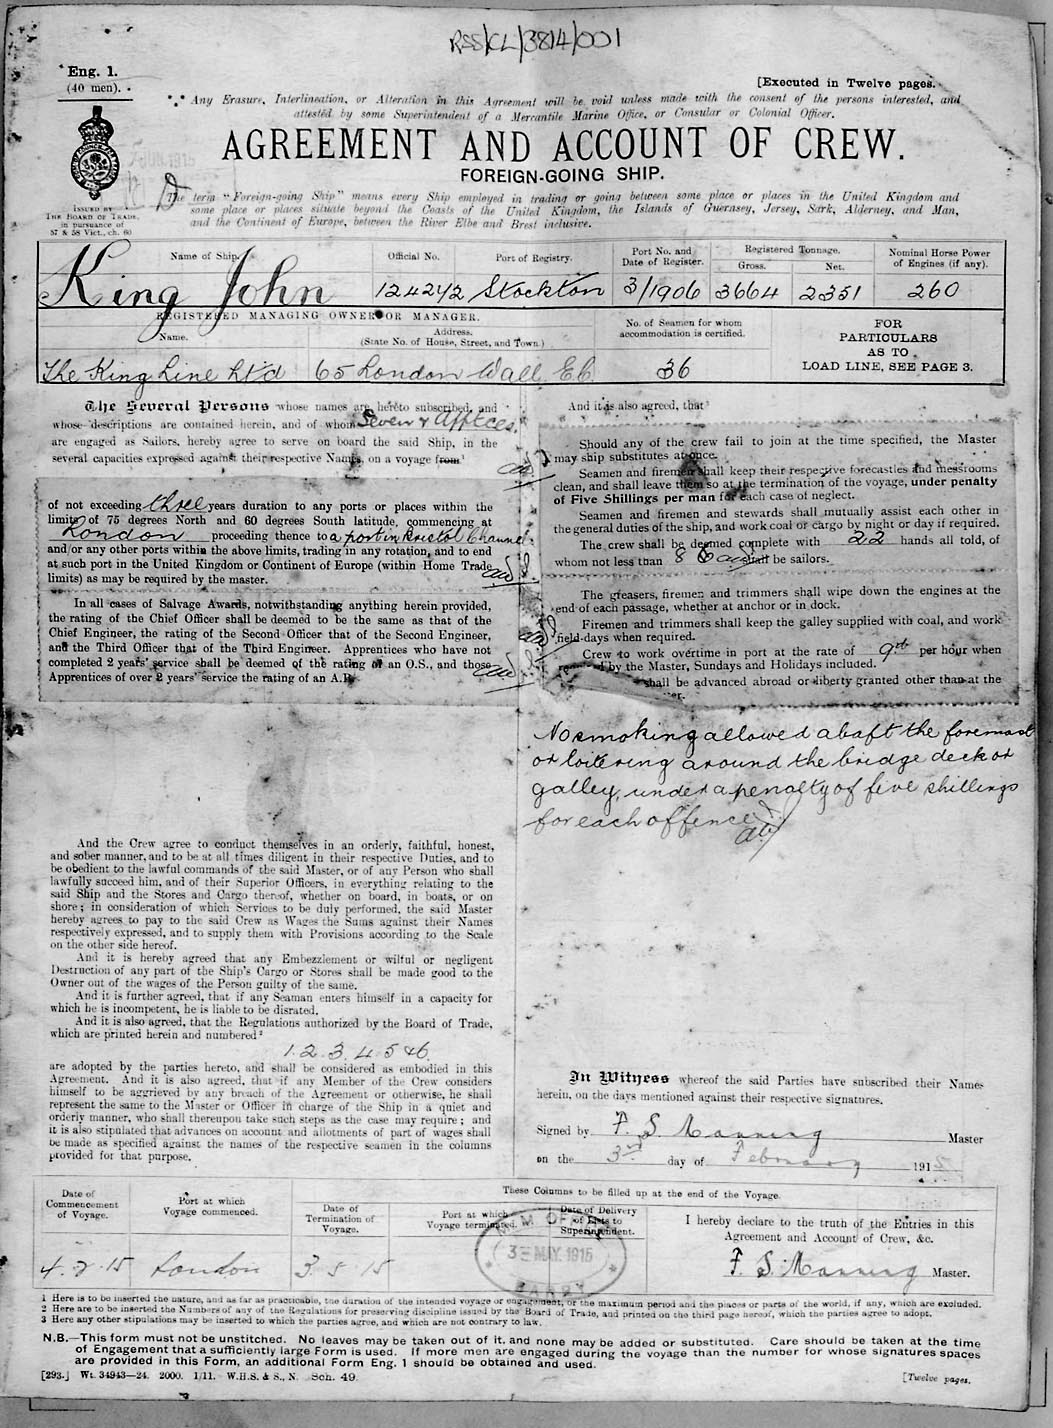 RSS/CL/3814/001
Eng. 1.
(40 men).
[Executed in Twelve pages.
Any Erasure, Interlineation, or Alteration in this Agreement will be void unless made with the consent of the persons interested, and
attested by some Superintendent of a Mercantile Marine Office, or Consular or Colonial Officer.
AGREEMENT AND ACCOUNT OF CREW.
FOREIGN-GOING SHIP.
ISSUED BY
THE BOARD OF TRADE,
in pursuance of
57 & 58 Vict., ch. 60
The term "Foreign-going Ship" means every Ship employed in trading or going between some place or places in the United Kingdom and
some place or places situate beyond the Coasts of the United Kingdom, the Islands of Guernsey, Jersey, Sark, Alderney, and Man,
and the Continent of Europe, between the River Elbe and Brest inclusive.
Name of Ship.
Official No.
Port of Registry.
Port No. and
Date of Register.
Registered Tonnage.
Gross.
Net.
Nominal Horse Power
of Engines (if any).
King John
124242
Stockton
3/1906
3664
2351
260
REGISTERED MANAGING OWNER OR MANAGER.
Name.
Address.
(State No. of House, Street, and Town.)
No. of Seamen for whom
accommodation is certified.
FOR
PARTICULARS
AS TO
LOAD LINE, SEE PAGE 3.
The King Line Ltd
65 London Wall, E.C.
36
The Several Persons whose names are hereto subscribed, and
whose descriptions are contained herein, and of whom Seven & Apptces.
are engaged as Sailors, hereby agree to serve on board the said Ship, in the
several capacities expressed against their respective Names, on a voyage from¹
of not exceeding three years duration to any ports or places within the
limits of 75 degrees North and 60 degrees South latitude, commencing at
London proceeding thence to a port in Bristol Channel
and/or any other ports within the above limits, trading in any rotation, and to end
at such port in the United Kingdom or Continent of Europe (within Home Trade
limits) as may be required by the master.
In all cases of Salvage Awards, notwithstanding anything herein provided,
the rating of the Chief Officer shall be deemed to be the same as that of the
Chief Engineer, the rating of the Second Officer that of the Second Engineer,
and the Third Officer that of the Third Engineer. Apprentices who have not
completed 2 years' service shall be deemed of the rating of an O.S., and those
Apprentices of over 2 years' service the rating of an A.B.
And the Crew agree to conduct themselves in an orderly, faithful, honest,
and sober manner, and to be at all times diligent in their respective Duties, and to
be obedient to the lawful commands of the said Master, or of any Person who shall
lawfully succeed him, and of their Superior Officers, in everything relating to the
said Ship and the Stores and Cargo thereof, whether on board, in boats, or on
shore; in consideration of which Services to be duly performed, the said Master
hereby agrees to pay to the said Crew as Wages the Sums against their Names
respectively expressed, and to supply them with Provisions according to the Scale
on the other side hereof.
And it is hereby agreed that any Embezzlement or wilful or negligent
Destruction of any part of the Ship's Cargo or Stores shall be made good to the
Owner out of the wages of the Person guilty of the same.
And it is further agreed, that if any Seaman enters himself in a capacity for
which he is incompetent, he is liable to be disrated.
And it is also agreed, that the Regulations authorized by the Board of Trade,
which are printed herein and numbered²
1. 2. 3. 4. 5 & 6.
are adopted by the parties hereto, and shall be considered as embodied in this
Agreement. And it is also agreed, that if any Member of the Crew considers
himself to be aggrieved by any breach of the Agreement or otherwise, he shall
represent the same to the Master or Officer in charge of the Ship in a quiet and
orderly manner, who shall thereupon take such steps as the case may require; and
it is also stipulated that advances on account and allotments of part of wages shall
be made as specified against the names of the respective seamen in the columns
provided for that purpose.
And it is also agreed, that³
Should any of the crew fail to join at the time specified, the Master
may ship substitutes at once.
Seamen and firemen shall keep their respective forecastles and messrooms
clean, and shall leave them so at the termination of the voyage, under penalty
of Five Shillings per man for each case of neglect.
Seamen and firemen and stewards shall mutually assist each other in
the general duties of the ship, and work coal or cargo by night or day if required.
The crew shall be deemed complete with 22 hands all told, of
whom not less than 8 shall be sailors.
The greasers, firemen and trimmers shall wipe down the engines at the
end of each passage, whether at anchor or in dock.
Firemen and trimmers shall keep the galley supplied with coal, and work
field-days when required.
Crew to work overtime in port at the rate of 9d per hour when
by the Master, Sundays and Holidays included.
shall be advanced abroad or liberty granted other than at the
No smoking allowed abaft the foremast
or loitering around the bridge deck or
galley, under a penalty of five shillings
for each offence
In Witness whereof the said Parties have subscribed their Names
herein, on the days mentioned against their respective signatures.
Signed by F. S. Manning Master
on the 3rd day of February 1915
Date of
Commencement
of Voyage.
Port at which
Voyage commenced.
These Columns to be filled up at the end of the Voyage.
Date of
Termination of
Voyage.
Port at which
Voyage terminated.
Date of Delivery
of Lists to
Superintendent.
I hereby declare to the truth of the Entries in this
Agreement and Account of Crew, &c.
4.2.15
London
3.5.15
M.M. OFFICE
3 MAY. 1915
BARRY
F. S. Manning Master.
1 Here is to be inserted the nature, and as far as practicable, the duration of the intended voyage or engagement, or the maximum period and the places or parts of the world, if any, which are excluded.
2 Here are to be inserted the Numbers of any of the Regulations for preserving discipline issued by the Board of Trade, and printed on the third page hereof, which the parties agree to adopt.
3 Here any other stipulations may be inserted to which the parties agree, and which are not contrary to law.
N.B.—This form must not be unstitched. No leaves may be taken out of it, and none may be added or substituted. Care should be taken at the time
of Engagement that a sufficiently large Form is used. If more men are engaged during the voyage than the number for whose signatures spaces
are provided in this Form, an additional Form Eng. 1 should be obtained and used.
[293.] Wt. 34943—24. 2000. 1/11. W.H.S. & S., N. Sch. 49.
[Twelve pages.